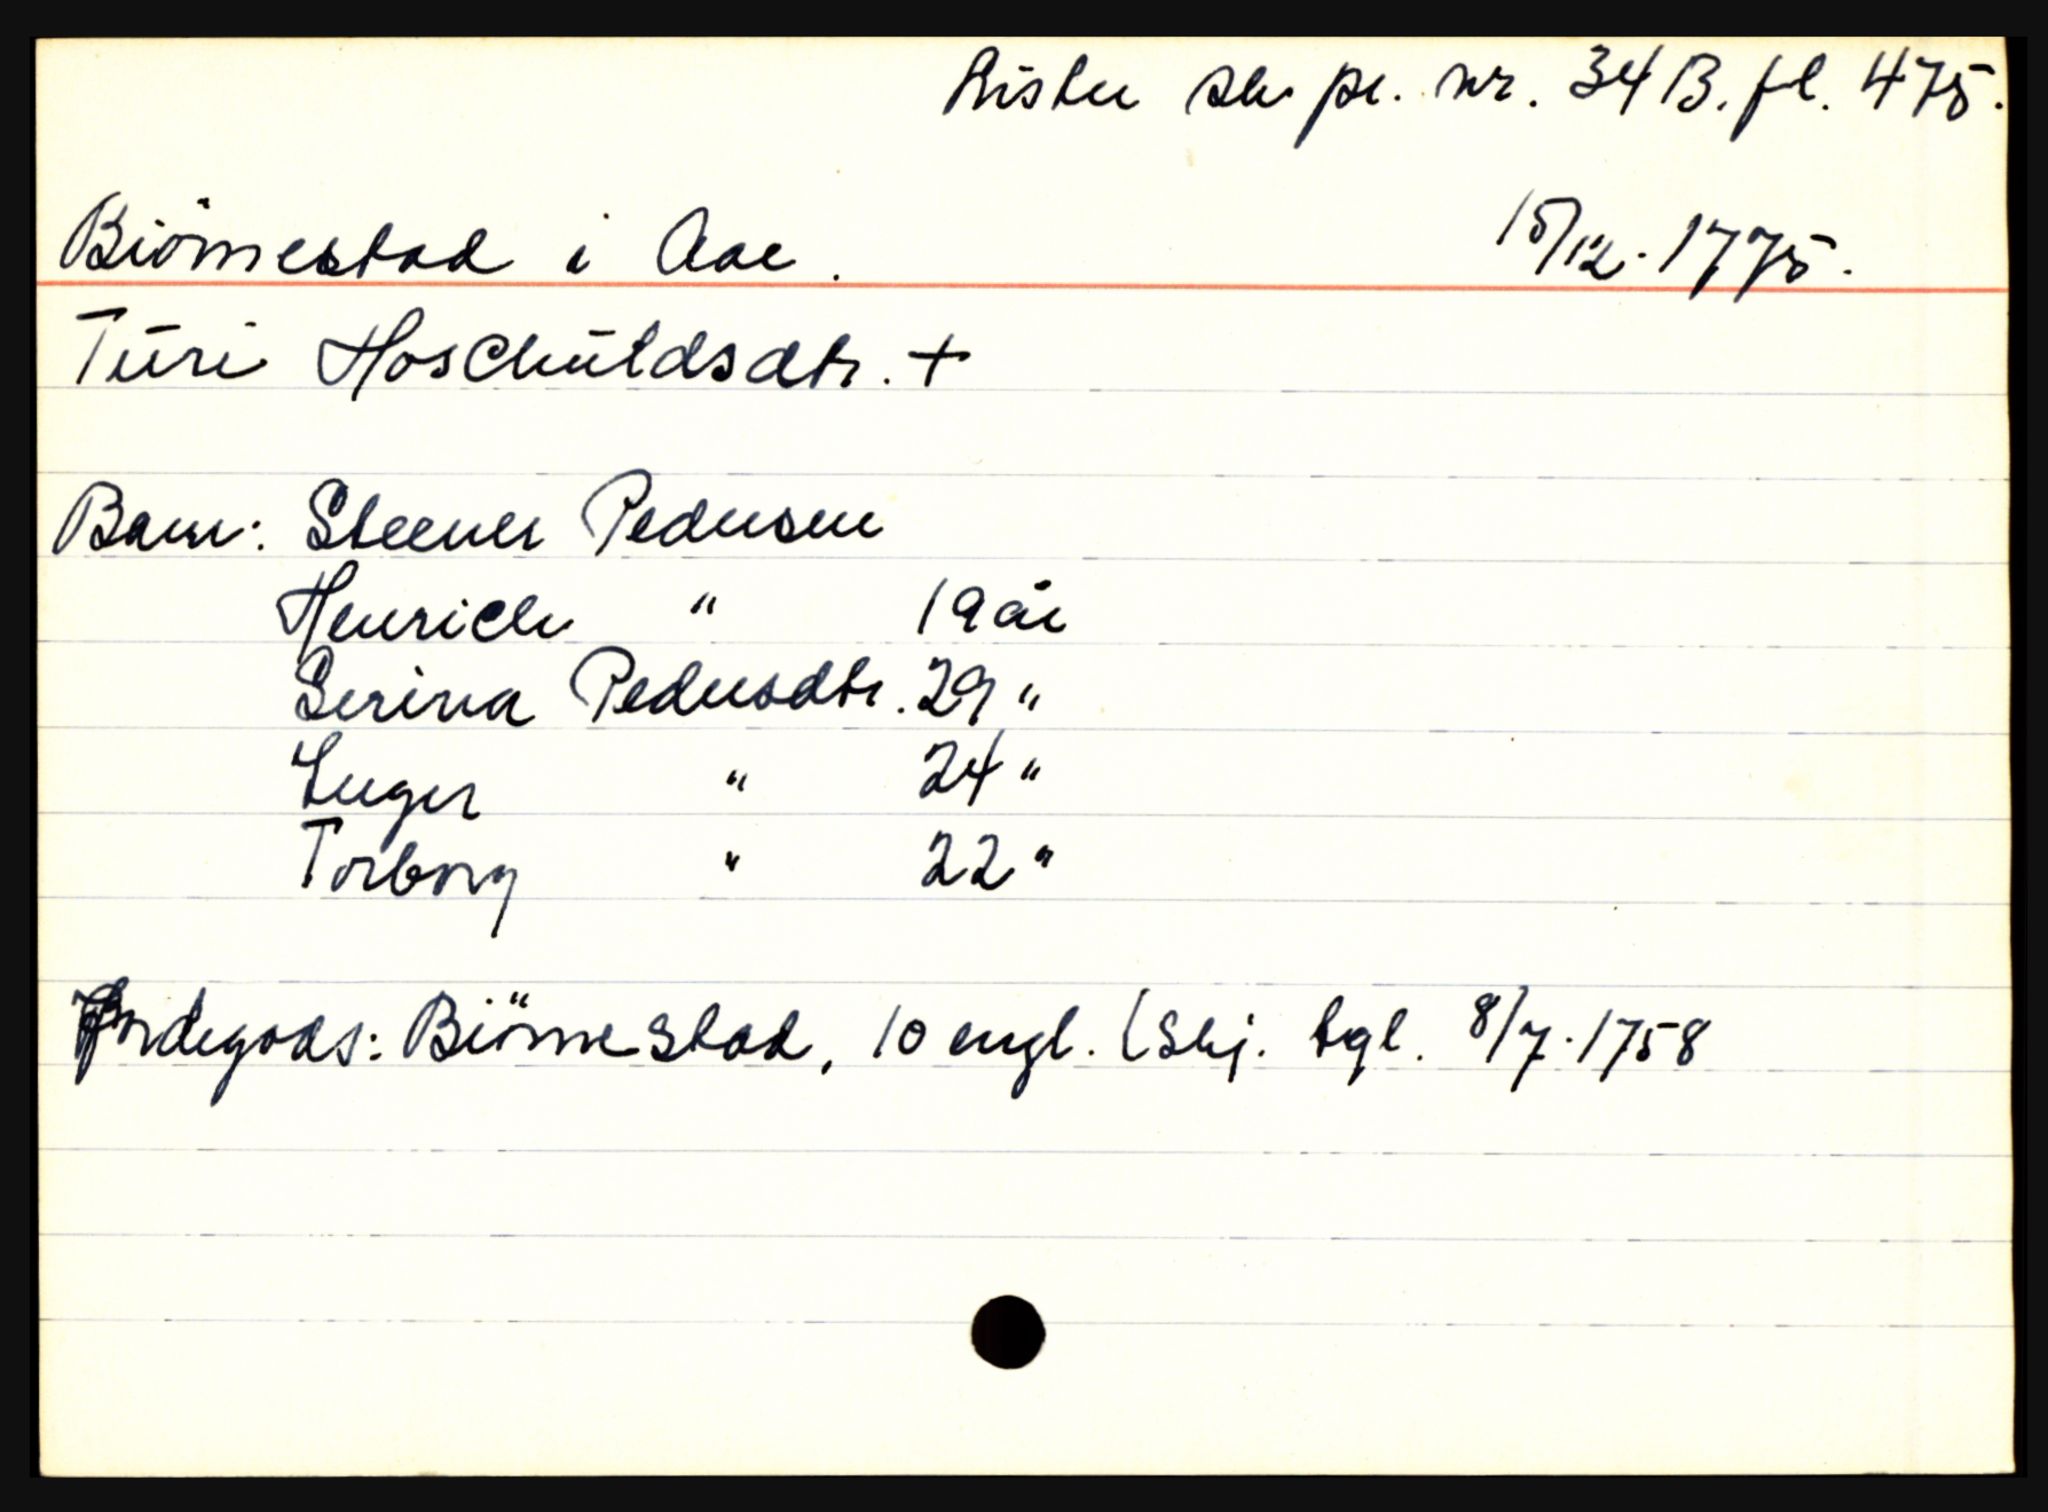 Lister sk. pr. nr. 34 B. fl. 475.
Biörnestad i Aae. 15/12. 1775.
Turi Hoschuldsdtr. +
Barn: Steener Pedersen
Henrich " 19 år
Serina Pedersdtr. 29 "
Inger " 24 "
Torborg " 22 "
Jordegods: Biörnestad, 10 engl. (Skj. tgl. 8/7. 1758